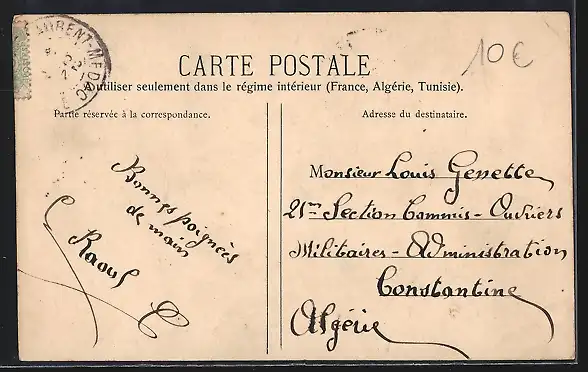 LAURENT-MEDOC
10€
CARTE POSTALE
A utiliser seulement dans le régime intérieur (France, Algérie, Tunisie).
Partie réservée à la correspondance.
Adresse du destinataire.
Bonnes poignées
de main
Raoul C
Monsieur Louis Genette
21me Section Commis-Ouvriers
Militaires-Administration
Constantine
Algérie